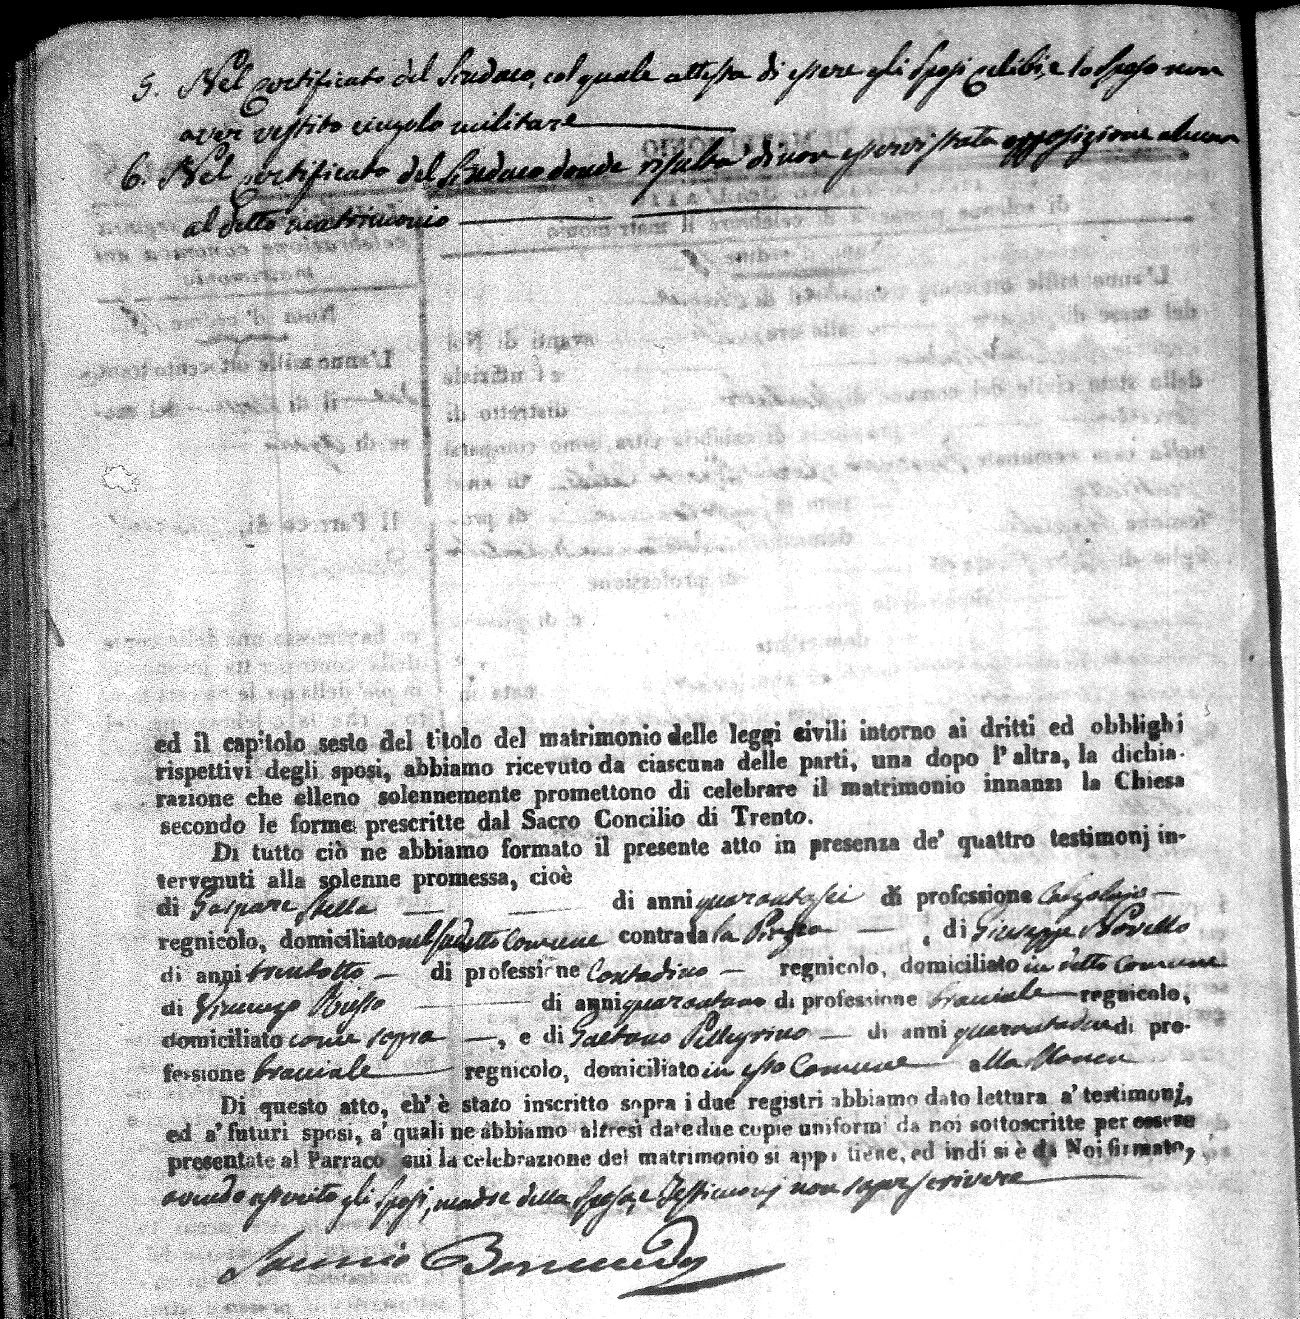 5. Nel certificato del Sindaco, col quale attesta di essere gli Sposi celibi, e lo Sposo non
aver vestito cingolo militare
6. Nel certificato del Sindaco donde risulta di non esservi stata opposizione alcuna
al detto matrimonio
ed il capitolo sesto del titolo del matrimonio delle leggi civili intorno ai dritti ed obblighi
rispettivi degli sposi, abbiamo ricevuto da ciascuna delle parti, una dopo l'altra, la dichia-
razione che elleno solennemente promettono di celebrare il matrimonio innanzi la Chiesa
secondo le forme prescritte dal Sacro Concilio di Trento.
Di tutto ciò ne abbiamo formato il presente atto in presenza de' quattro testimonj in-
tervenuti alla solenne promessa, cioè
di Gaspare Stella di anni quarantasei di professione Calzolajo
regnicolo, domiciliato nel sudetto Comune contrada la Piazza, di Giuseppe Povello
di anni trentotto di professione Contadino regnicolo, domiciliato in detto Comune
di Vincenzo Russo di anni quarantuno di professione braciale regnicolo,
domiciliato come sopra, e di Gaetano Pellegrino di anni quarantadue di pro-
fessione braciale regnicolo, domiciliato in esso Comune alla
Di questo atto, ch' è stato inscritto sopra i due registri abbiamo dato lettura a' testimonj,
ed a' futuri sposi, a' quali ne abbiamo altresì date due copie uniformi da noi sottoscritte per essere
presentate al Parraco cui la celebrazione del matrimonio si appartiene, ed indi si è da Noi firmato,
avendo asserito gli Sposi, madre della Sposa, e Testimonj non saper scrivere